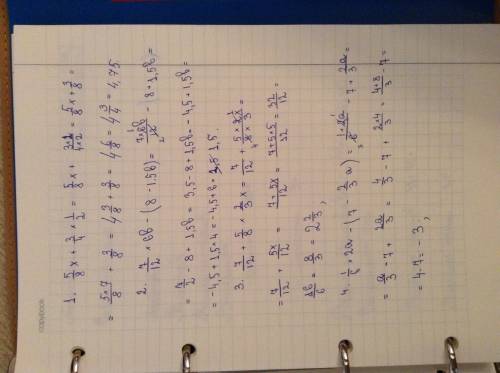 1. 5/8 x + 3/4 × 1/2 = 5/8 x + 3×1/4×2 = 5/8 x + 3/8 =
= 5×7/8 + 3/8 = 4 3/8 + 3/8 = 4 6/8 = 4 3/4 = 4,75
2. 7/12 × 6b − (8 − 1,5b) = 7×6b/12 − 8 + 1,5b =
= 7/2 − 8 + 1,5b = 3,5 − 8 + 1,5b = −4,5 + 1,5b =
= −4,5 + 1,5×4 = −4,5 + 6 = 1,5.
3. 7/12 + 5/8 × 2/3 x = 7/12 + 5×2x/8×3 =
= 7/12 + 5x/12 = 7+5x/12 = 7+5×5/12 = 32/12 =
16/6 = 8/3 = 2 2/3;
4. 1/6 × 2a − (7 − 2/3 a) = 1×2a/6 − 7 + 2a/3 =
= a/3 − 7 + 2a/3 = 4/3 − 7 + 2×4/3 = 4+8/3 − 7 =
= 4−7 = −3;